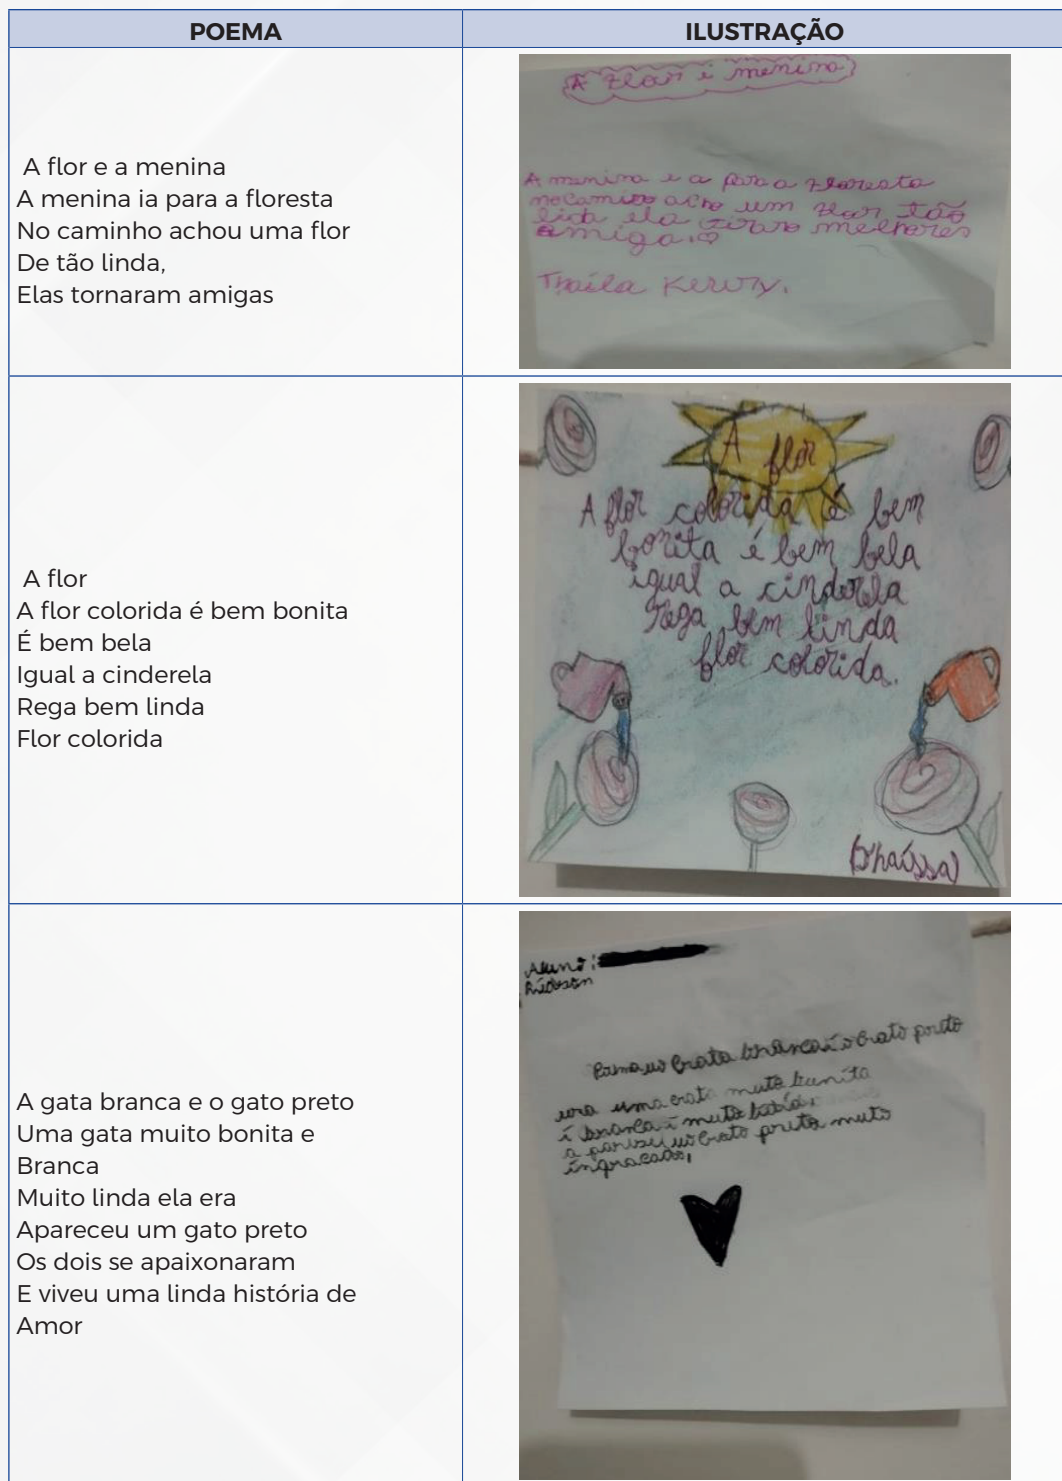 POEMA
ILUSTRAÇÃO
A flor e a menina
A menina ia para a floresta
No caminho achou uma flor
De tão linda,
Elas tornaram amigas
A flor i menina
A menina e a para a floresta
no camiro acho um flor tão
lida ela firaro melhores
amiga.
Thaíla Kerury.
A flor
A flor colorida é bem bonita
É bem bela
Igual a cinderela
Rega bem linda
Flor colorida
A flor
A flor colorida é bem
bonita é bem bela
igual a cinderela
rega bem linda
flor colorida.
(Thaíssa)
A gata branca e o gato preto
Uma gata muito bonita e
Branca
Muito linda ela era
Apareceu um gato preto
Os dois se apaixonaram
E viveu uma linda história de
Amor
Aluno:
gata branca i o gato preto
era uma gata muto bunita
i branca i muto
gato preto muto
ingracado,